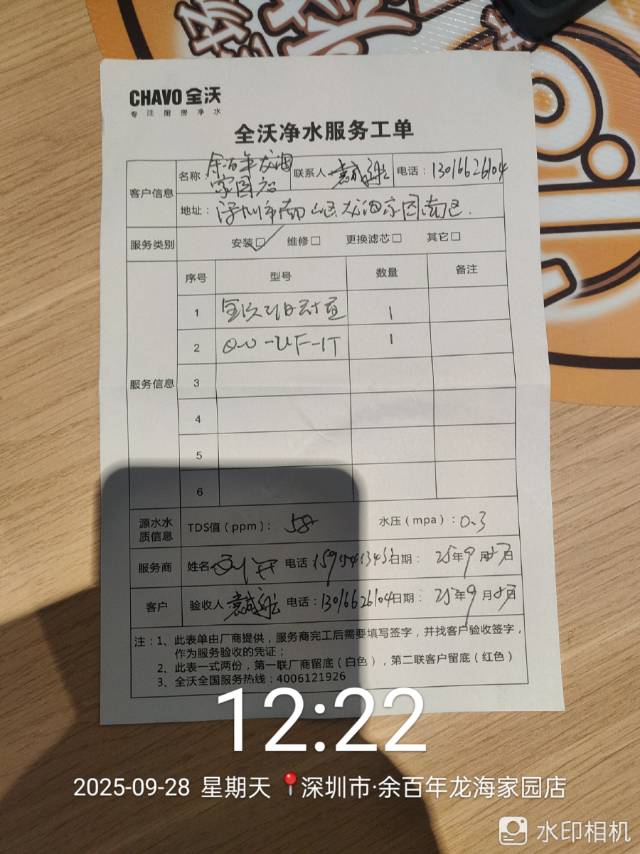 CHAVO 全沃
专注厨房净水
全沃净水服务工单
客户信息
名称 余百年龙海家园店 联系人 电话：13016626104
地址：深圳市南山区龙海家园南区.
服务类别 安装☑ 维修□ 更换滤芯□ 其它□
服务信息
序号 型号 数量 备注
1 1
2 QW-UF-1T 1
3
4
5
6
源水水质信息 TDS值（ppm）：58 水压（mpa）：0.3
服务商 姓名 电话 日期： 25年9月 日
客户 验收人 电话：13016626104 日期： 25年9月 日
注：1、此表单由厂商提供，服务商完工后需要填写签字，并找客户验收签字，
作为服务验收的凭证；
2、此表一式两份，第一联厂商留底（白色），第二联客户留底（红色）
3、全沃全国服务热线：4006121926
12:22
2025-09-28 星期天 深圳市·余百年龙海家园店
水印相机